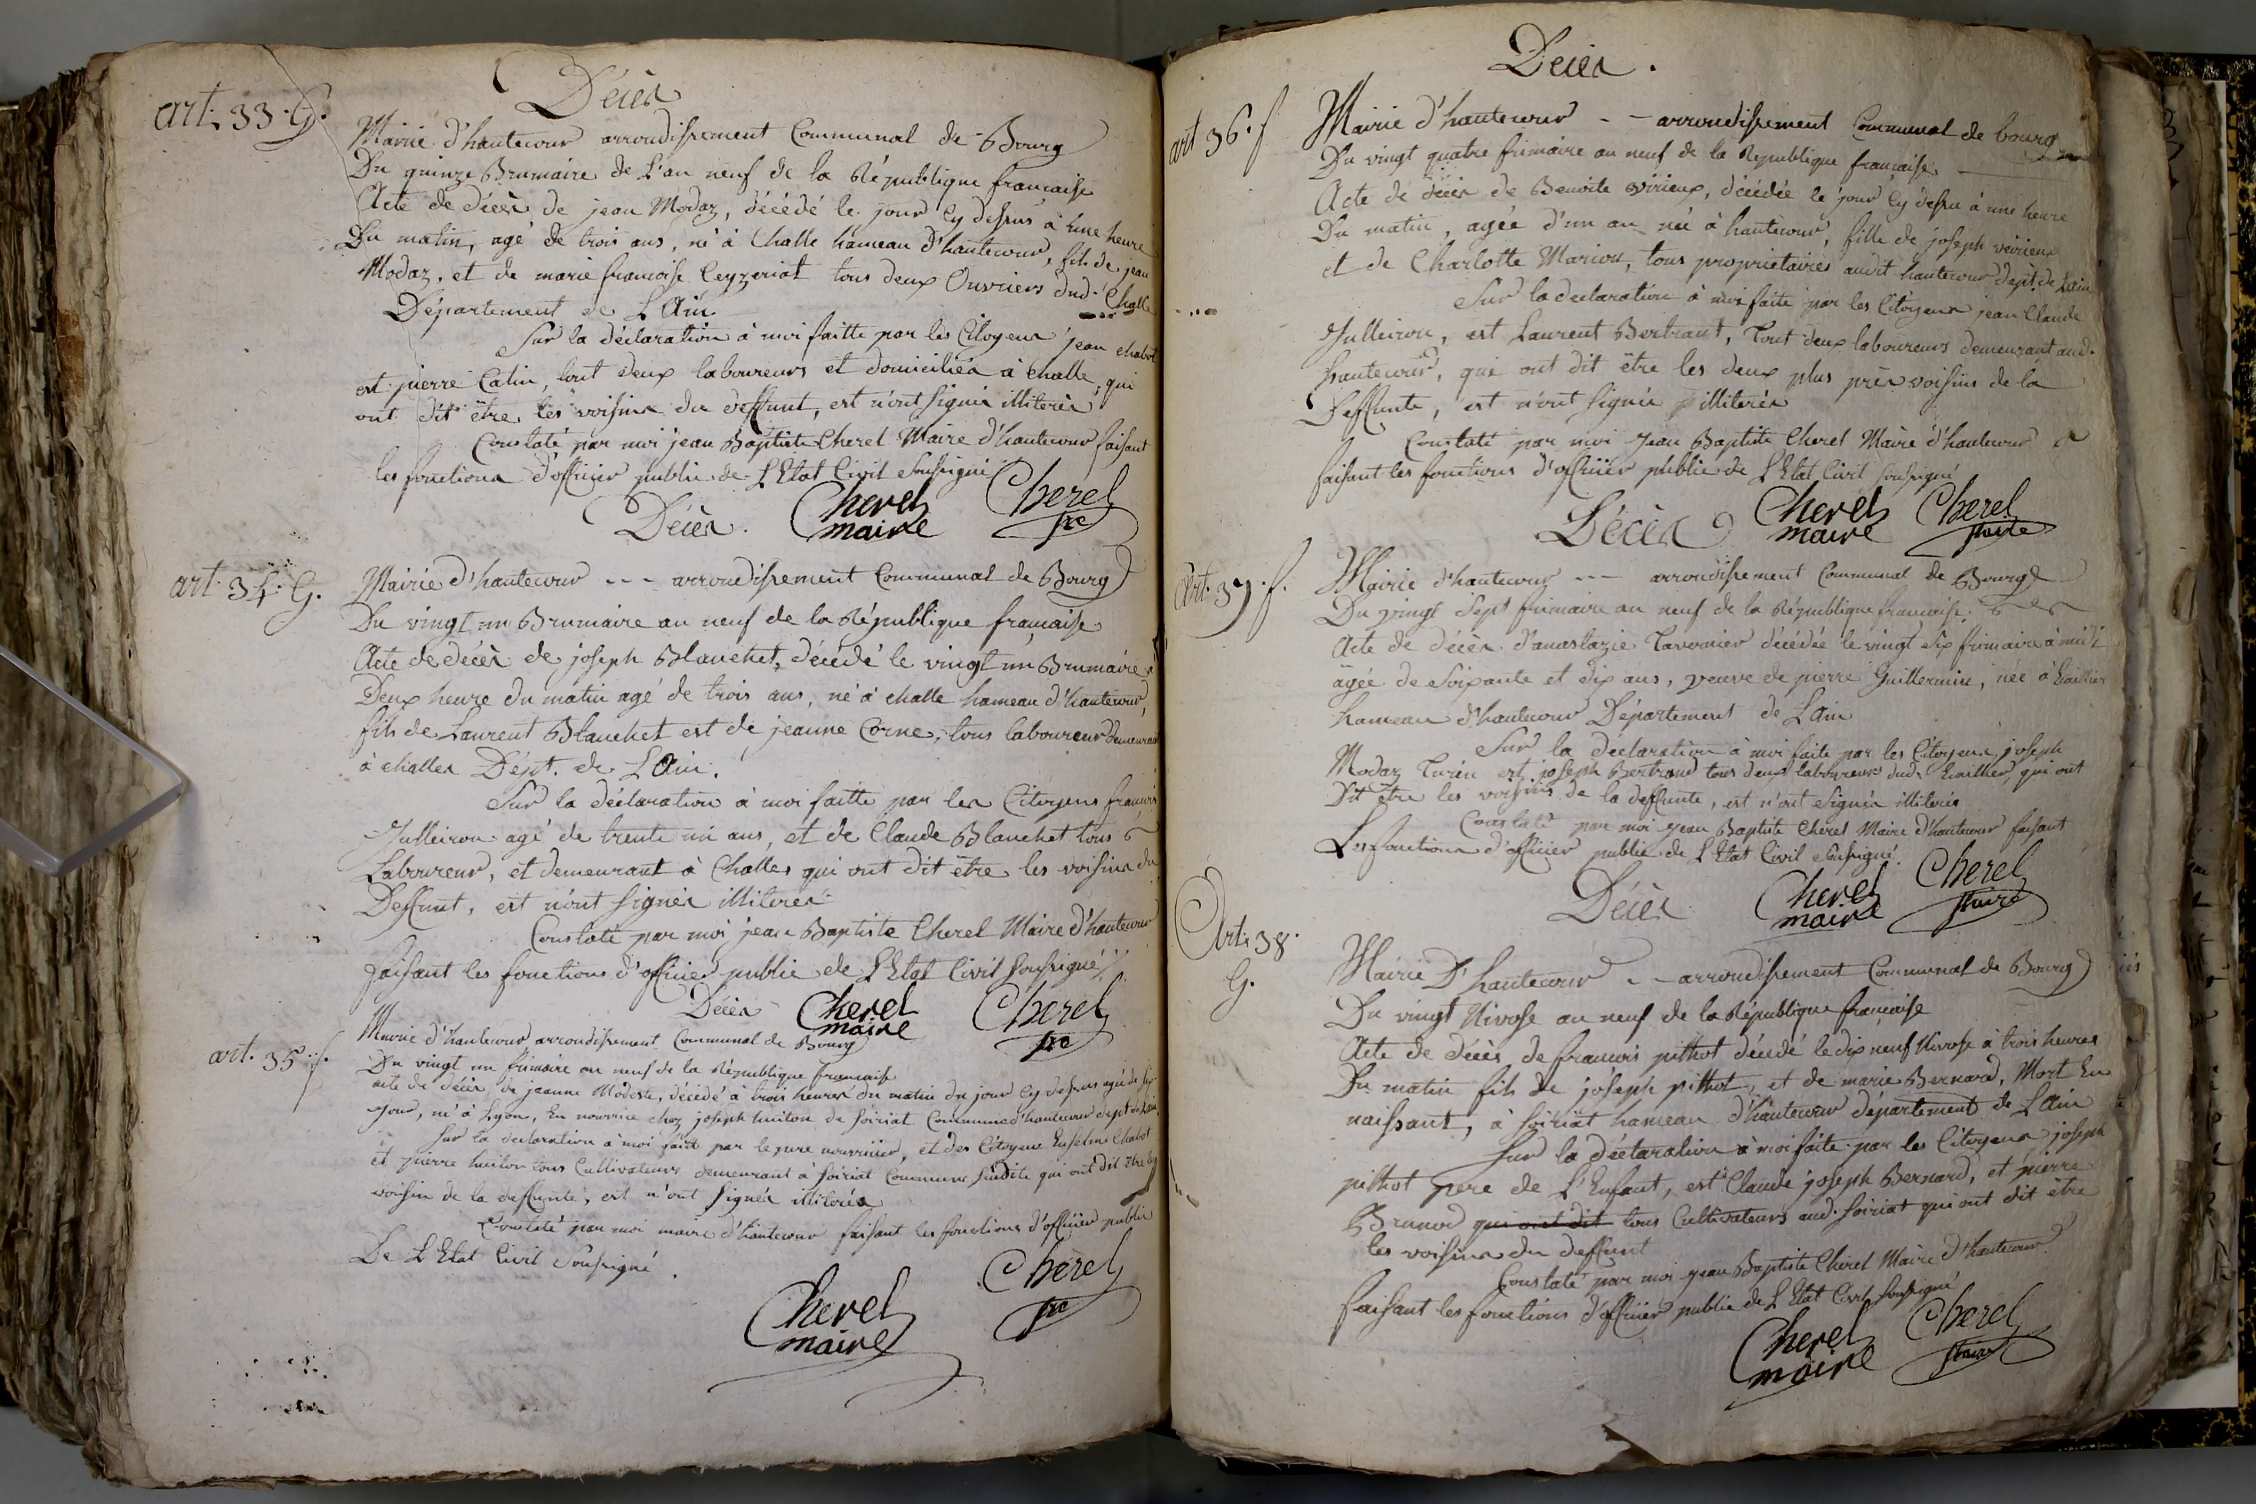 Décès
art. 33. G.
Mairie d'hautecour arrondissement Communal de Bourg
Du quinze Brumaire de L'an neuf de la République francaise
Acte de décès de jean Modaz, décédé le jour cy dessus à une heure
Du matin, agé de trois ans, né à Challe hameau d'hautecour, fils de jean
Modaz, et de marie francoise Ceyzeriat tous deux Ouvriers dud. Challe
Département de L'Ain
Sur la déclaration à moi faitte par les Citoyens jean chabot
est pierre Catin, tout deux laboureurs et domiciliés à challe, qui
ont dit être les voisins du deffunt, est n'ont signés illiterés
Constaté par moi jean Baptiste Cherel Maire d'hautecour faisant
les fonctions d'officier public de L'Etat Civil Soussigné
Décès. Cherel maire Cherel
art. 34. G.
Mairie d'hautecour --- arrondissement Communal de Bourg
Du vingt un Brumaire an neuf de la République francaise
Acte de décès de joseph Blanchet, décédé le vingt un Brumaire à
Deux heure du matin agé de trois ans, né à challe hameau d'hautecour,
fils de Laurent Blanchet est de jeanne Corne, tous laboureur Demeurant
à challes Dépt. de L'Ain.
Sur la déclaration à moi faitte par les Citoyens francois
Julleiron agé de trente un ans, et de Claude Blanchet tous
Laboureur, et demeurant à Challes qui ont dit être les voisins du
Deffunt, est n'ont signés illiterés
Constaté par moi jean Baptiste Cherel Maire d'hautecour
faisant les fonctions d'officier public de L'Etat Civil soussigné
Décès Cherel maire Cherel
art. 35. f.
Mairie d'hautecour arrondissement Communal de Bourg
Du vingt un frimaire an neuf de la République francaise
acte de décès de jeanne Modeste, décédé à trois heures du matin du jour cy dessus agée de six
jour, né à Lyon, En nourrice chez joseph huiton de soiriat Commune d'hautecour dept de Lain
Sur la declaration à moi faite par le pere nourricier, et des Citoyens Enselme Chabot
et pierre huiton tous Cultivateurs demeurant à soiriat Commune susdite qui ont dit être les
voisin de la deffunte, est n'ont signés illiterés
Constaté par moi maire d'hautecour faisant les fonctions d'officier public
De L'Etat Civil Soussigné.
Cherel maire Cherel
Décès.
art 36. f
Mairie d'hautecour -- arrondissement Communal de bourg
Du vingt quatre frimaire an neuf de la République francaise
Acte de décès de Benoite virieux, décédée le jour cy dessu à une heure
Du matin, agée d'un an née à hautecour, fille de joseph veirieux
et de Charlotte Marion, tous propriétaires audit hautecour dept. de Lain
Sur la declaration à moi faite par les Citoyens jean Claude
Julleiron, est Laurent Bertrant, Tout deux laboureurs demeurant aud.
hautecour, qui ont dit être les deux plus près voisins de la
Deffunte, est n'ont signés illiterés
Constaté par moi jean Baptiste Cherel Maire d'hautecour
faisant les fonctions d'officier public de L'Etat Civil soussigné
Décès Cherel maire Cherel maire
Art. 37. f.
Mairie d'hautecour --- arrondissement Communal de Bourg
Du vingt Sept frimaire an neuf de la République francaise.
Acte de décès d'anastazie Tavernier décédée le vingt six frimaire à midi
agée de Soixante et dix ans, veuve de pierre Guillermin, née à
hameau d'hautecour Département de L'ain
Sur la déclaration à moi faite par les Citoyens joseph
Modaz est joseph Bertrand tous deux laboureurs dud. qui ont
Dit être les voisins de la deffunte, est n'ont signés illiterés
Constaté par moi jean Baptiste Cherel Maire d'hautecour faisant
Les fonctions d'officier public de L'Etat Civil Soussigné.
Décès Cherel maire Cherel maire
Art. 38.
G.
Mairie D'hautecour -- arrondissement Communal de Bourg
Du vingt Nivose an neuf de la République francaise
Acte de décès de francois pithot décédé le dix neuf Nivose à trois heures
Du matin fils de joseph pithot, et de marie Bernard, Mort En
naissant, à soiriat hameau d'hautecour département de L'ain
Sur la déclaration à moi faite par les Citoyens joseph
pithot pere de L'Enfant, est Claude joseph Bernard, et pierre
Brunod qui ont dit tous Cultivateurs aud. soiriat qui ont dit être
les voisins du deffunt
Constaté par moi jean Baptiste Cherel Maire d'hautecour
faisant les fonctions d'officier public de L'Etat Civil soussigné
Cherel maire Cherel maire